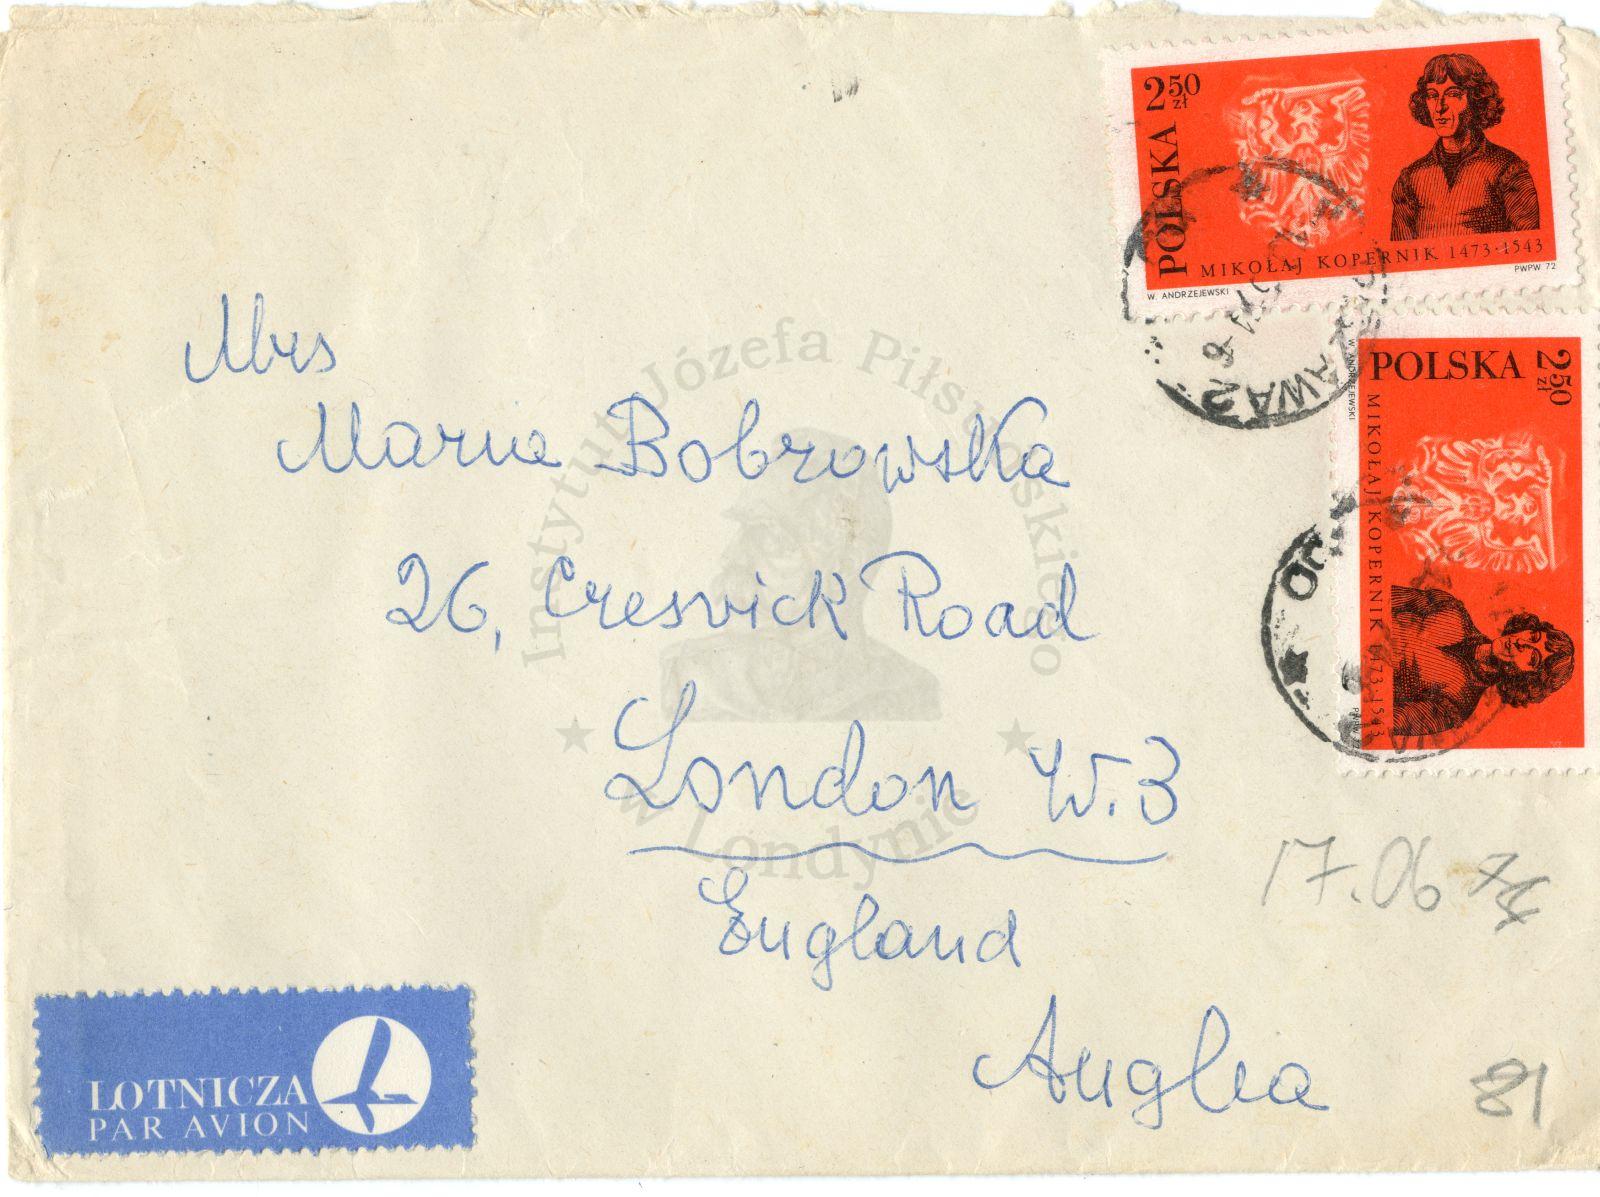 2 50 zł
POLSKA
MIKOŁAJ KOPERNIK 1473·1543
W. ANDRZEJEWSKI
PWPW 72
POLSKA
2 50 zł
MIKOŁAJ KOPERNIK 1473·1543
W. ANDRZEJEWSKI
PWPW 72
Mrs
Maria Bobrowska
26, Creswick Road
London W.3
England
Anglia
17.06
81
LOTNICZA
PAR AVION
Instytut Józefa Piłsudskiego
w Londynie